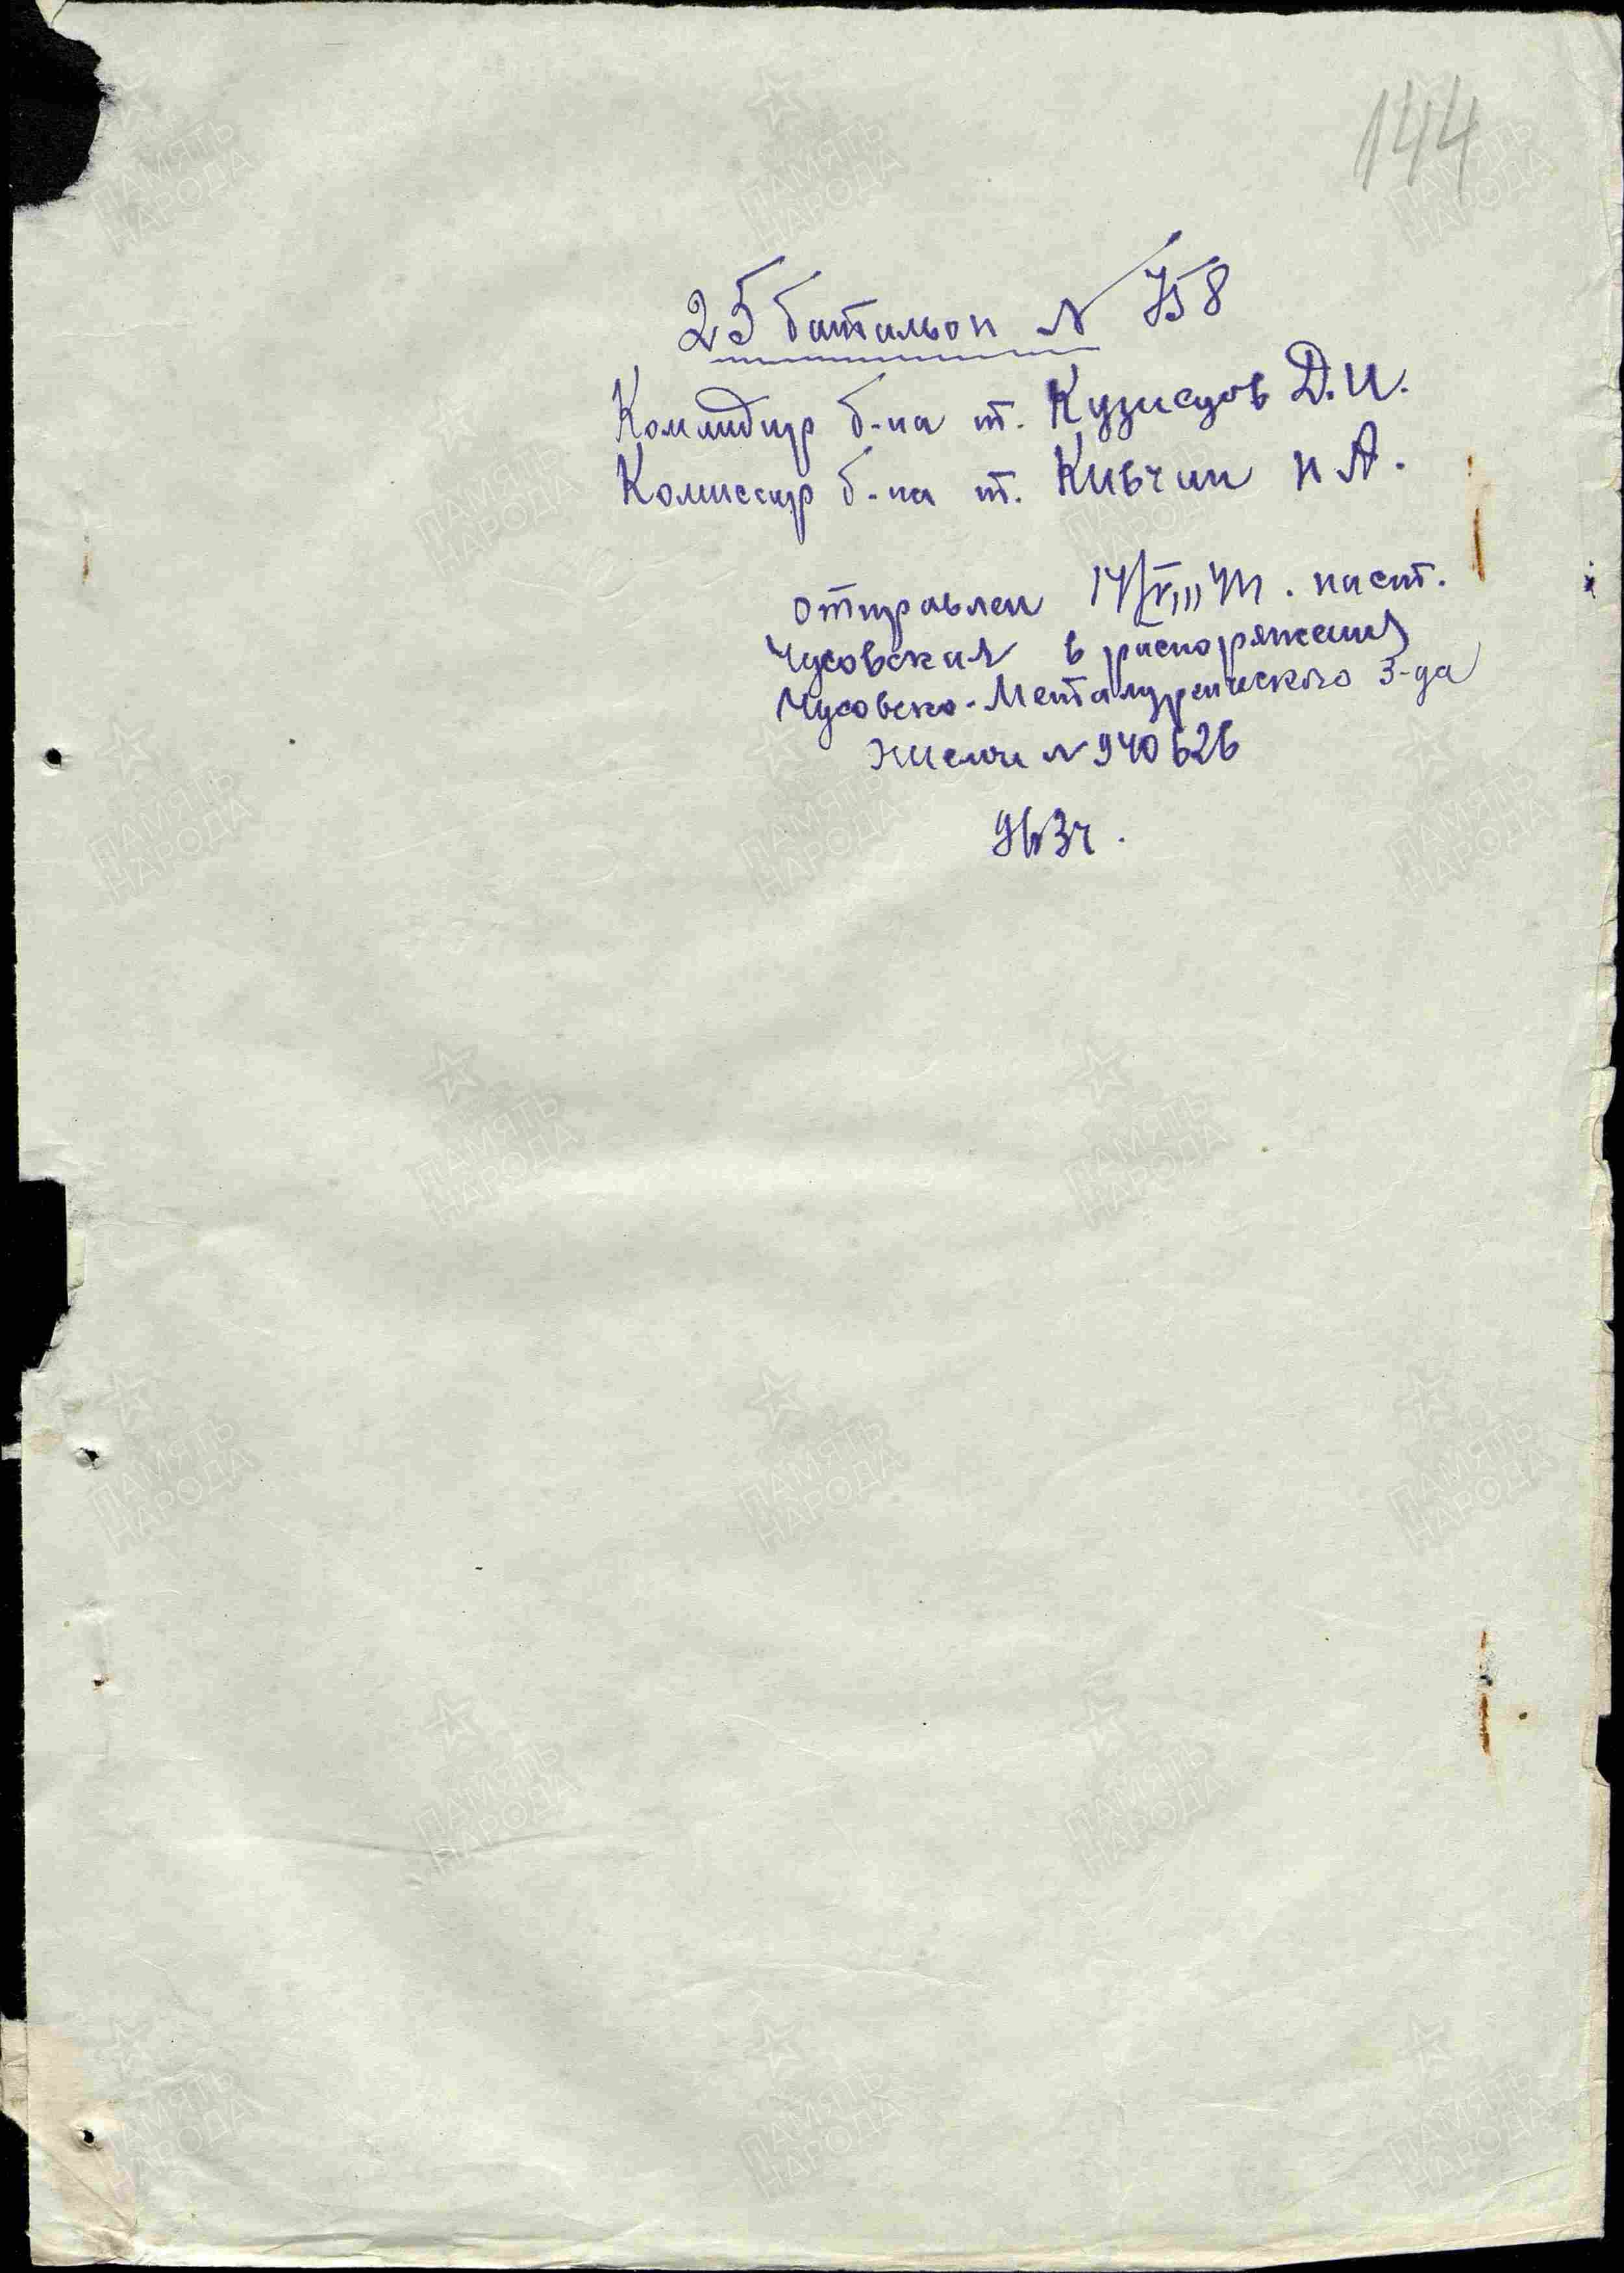 144
25 батальон № 758
Командир б-на т. Кузнецов Д.И.
Комиссар б-на т. Кивчин П А.
Отправлен 14/VIII 41г. на ст.
Чусовская в распоряжения
Чусовско-Металургического з-да
Жел № 940626
963ч.
ПАМЯТЬ
НАРОДА